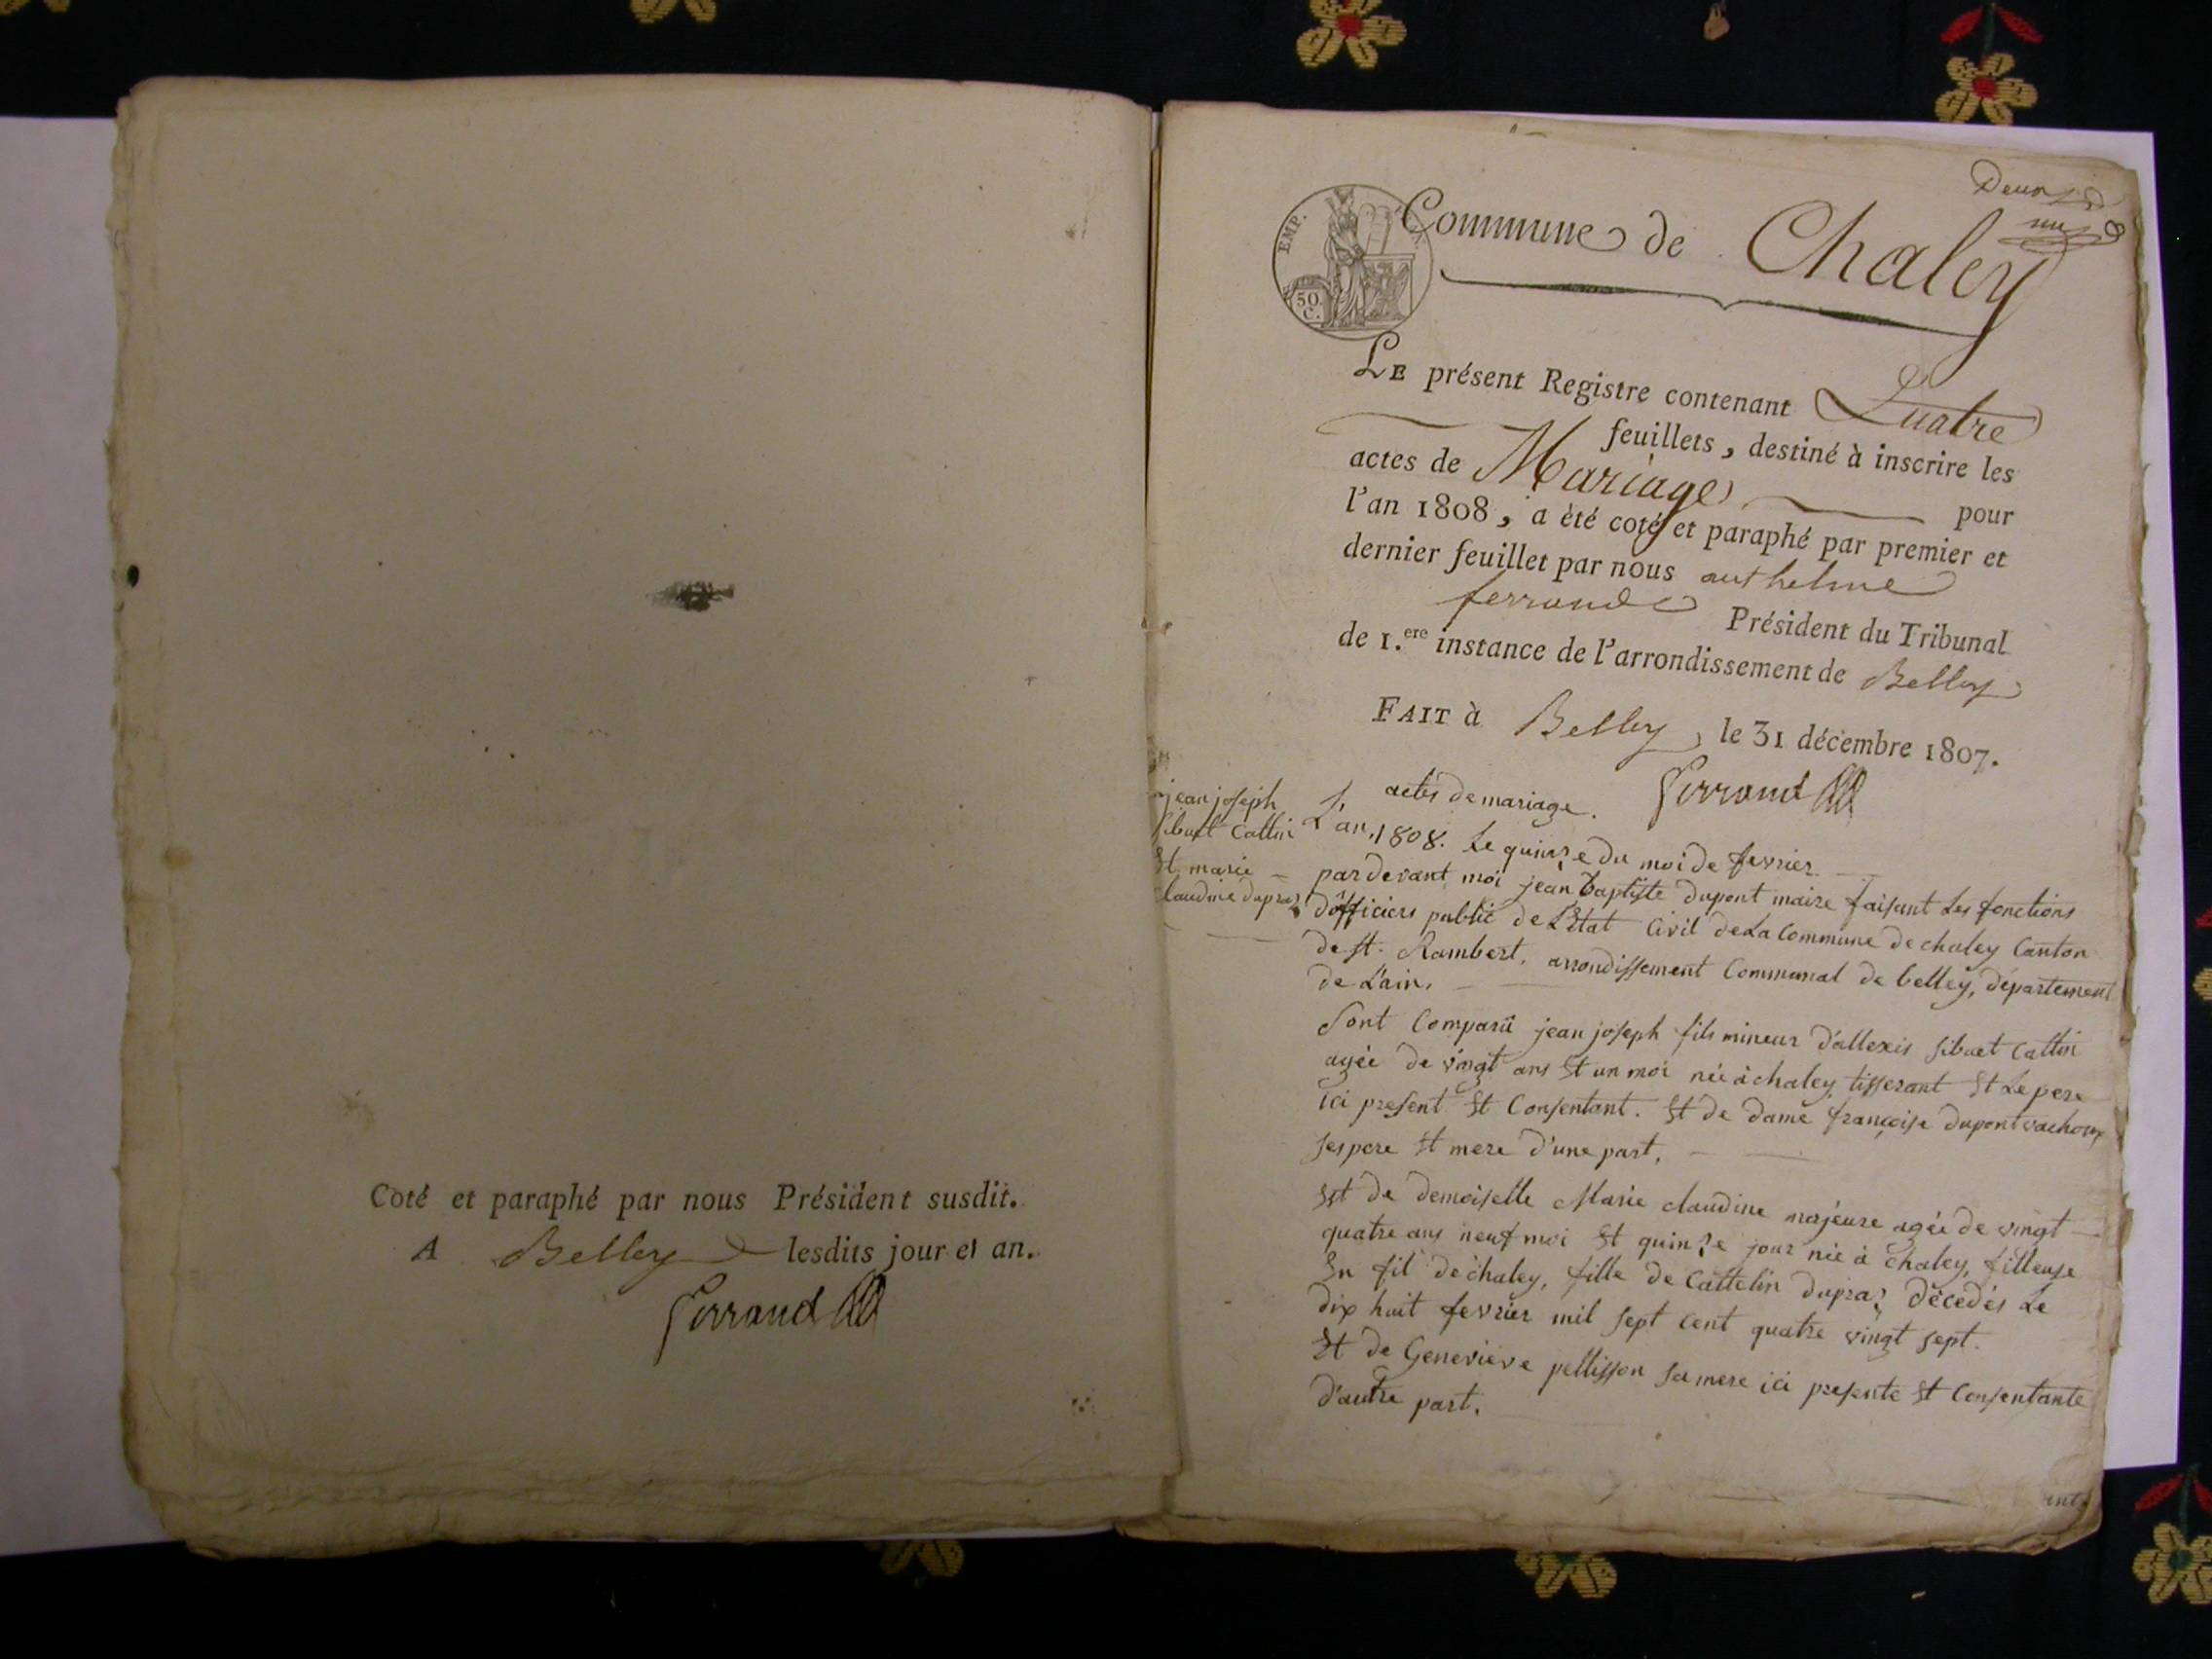 Coté et paraphé par nous Président susdit.
A Belley lesdits jour et an.
Ferrand
EMP.
50.
C.
Commune de Chaley
LE présent Registre contenant Quatre
feuillets, destiné à inscrire les
actes de Mariage pour
l'an 1808, a été coté et paraphé par premier et
dernier feuillet par nous anthelme
ferrand Président du Tribunal
de 1.ere instance de l'arrondissement de Belley
FAIT à Belley, le 31 décembre 1807.
Ferrand
actes de mariage.
jean joseph
sibuet Cattin
Et marie
claudine dupraz
L'an 1808. Le quinze du moi de fevrier
pardevant moi jean baptiste dupont maire faisant Les fonctions
d'officiers public de L'Etat Civil de La Commune de chaley Canton
de st. Rambert, arrondissement Communal de belley, département
de L'ain.
Sont Comparû jean joseph fils mineur d'allexis sibuet Cattin
agée de vingt ans Et un moi née à chaley tisserant Et Le pere
ici present Et Consentant. Et de dame françoise dupont vachoux
ses pere Et mere d'une part.
Et de demoiselle Marie claudine majeure agée de vingt
quatre ans neuf moi Et quinze jour née à chaley, filleuse
En fil de chaley, fille de Cattelin dupraz décédés Le
dix huit fevrier mil sept cent quatre vingt sept.
Et de Genevieve pellisson sa mere ici presente Et Consentante
d'autre part.